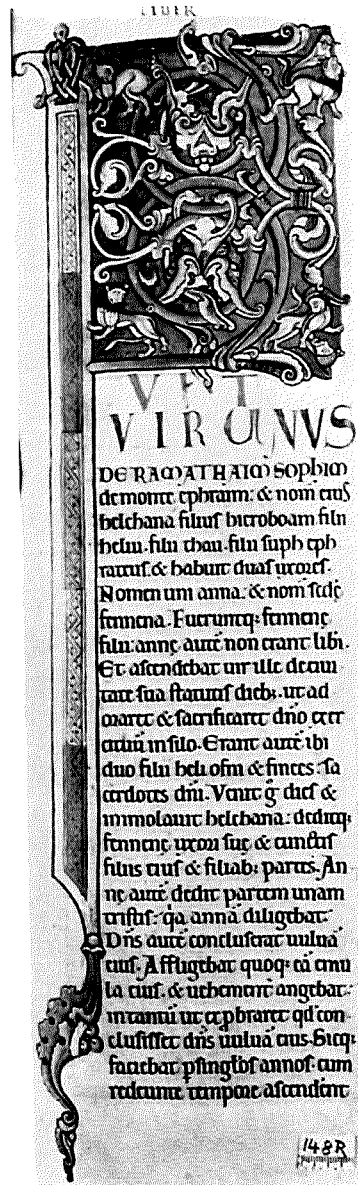 LIBER
F
VIT
VIR UNUS
DE RAMATHAIM SOPHIM
de monte ephraim: & nom eiuſ
helchana filiuſ hieroboam. filii
heliu. filii thau. filii ſuph eph
rateuſ. & habuit duaſ uxoreſ.
Nomen uni anna. & nom ſcdę
fennena. Fueruntq; fennenę
filii: annę autē non erant libi.
Et aſcendebat uir ille de ciui
tate ſua ſtatutiſ dieb;. ut ad
oraret & ſacrificaret dn̄o exer
cituū in ſilo. Erant autē ibi
duo filii heli. ofni & fineeſ: ſa
cerdoteſ dn̄i. Venit g̊ dieſ &
immolauit helchana: deditq;
fennenę uxori ſuę & cunctiſ
filiiſ eiuſ & filiab; parteſ. An
nę autē dedit partem unam
triſtiſ: qa annā diligebat.
Dn̄s autē concluſerat uuluā
eiuſ. Affligebat quoq; eā emu
la eiuſ. & uehement̄ angebat:
in tantū ut exprobraret qd con
cluſiſſet dn̄s uuluā eiuſ. Sicq;
faciebat p ſinglōſ annoſ. cum
redeunte tempore aſcenderent
148R